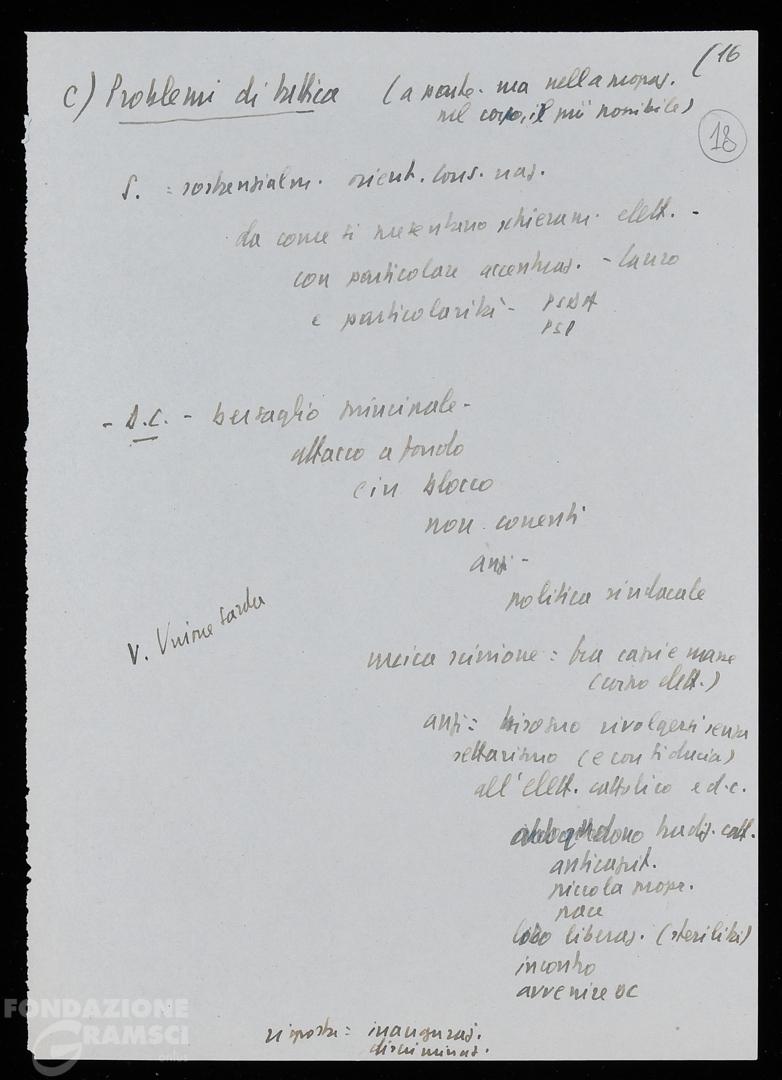 (16
c) Problemi di tattica (a parte. ma nella propag.
nel corpo, il più possibile)
18
S. = sostanzialm. orient. cons. naz.
da come si presentano schieram. elett. -
con particolare accentuaz. - Lauro
e particolarità - PSDA
PSI
- D.C. - bersaglio principale -
attacco a fondo
e in blocco
non correnti
anzi -
politica sindacale
V. Unione Sarda
unica scissione = tra capi e masse
(corpo elett.)
anzi = bisogno rivolgersi senza
settarismo (e con fiducia)
all'elett. cattolico e d.c.
tradiz. catt.
anticapit.
piccola propr.
pace
loro liberaz. (sterilità)
incontro
avvenire DC
risposta = inauguraz.
discriminaz.
FONDAZIONE
GRAMSCI
onlus